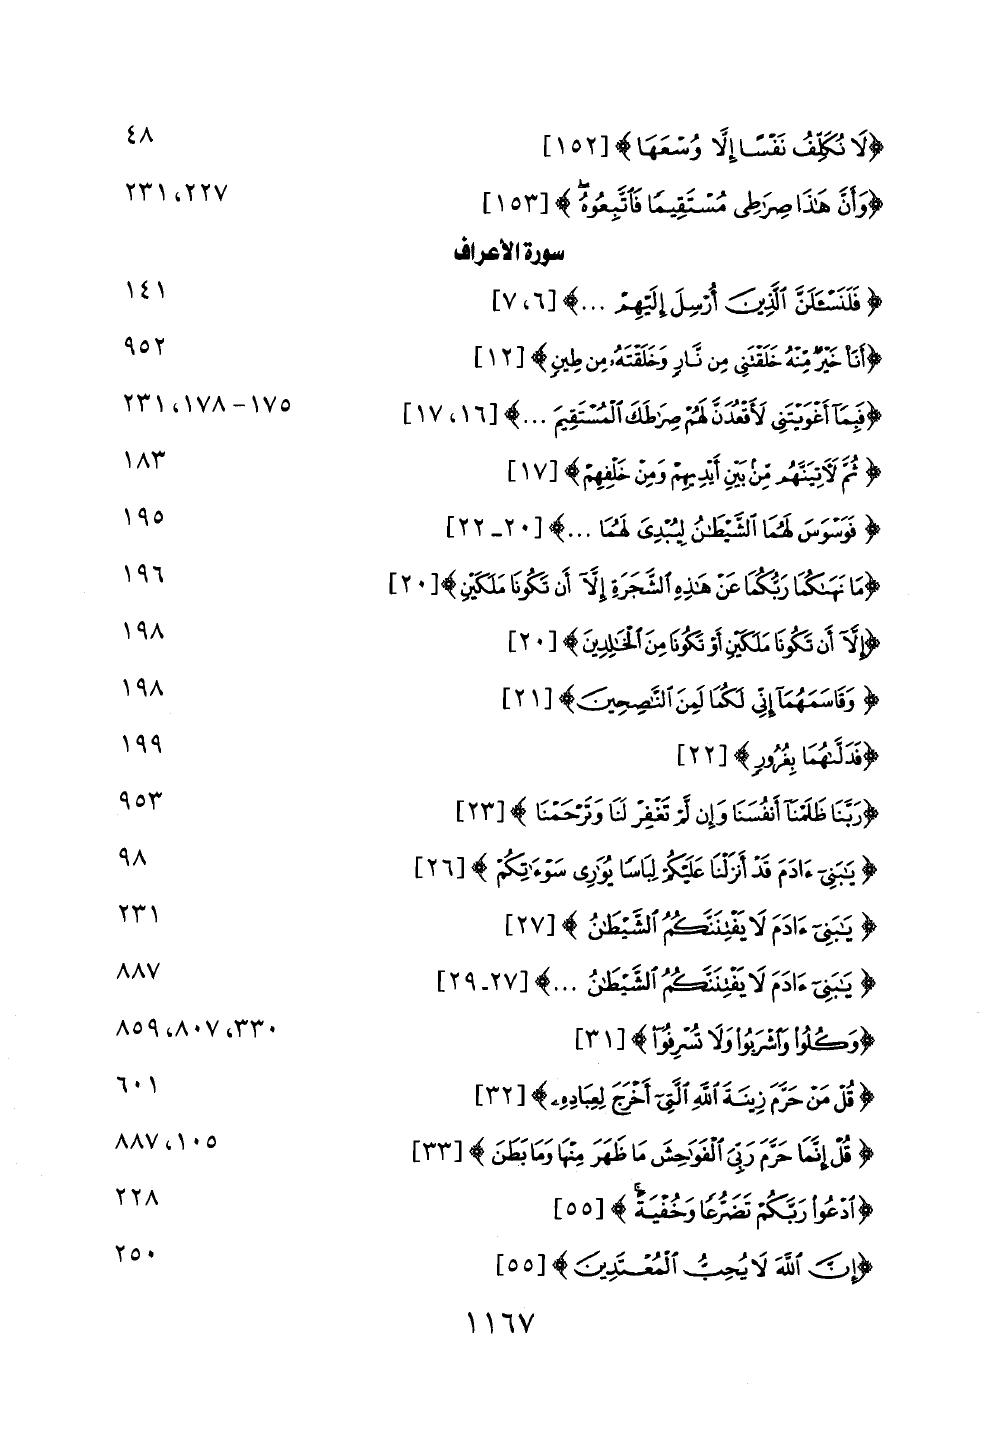 ﴿لَا نُكَلِّفُ نَفْسًا إِلَّا وُسْعَهَا﴾ [١٥٢] ٤٨
﴿وَأَنَّ هَٰذَا صِرَٰطِى مُسْتَقِيمًا فَٱتَّبِعُوهُ ۖ﴾ [١٥٣] ٢٣١،٢٢٧
سورة الأعراف
﴿فَلَنَسْـَٔلَنَّ ٱلَّذِينَ أُرْسِلَ إِلَيْهِمْ ...﴾ [٧،٦] ١٤١
﴿أَنَا۠ خَيْرٌ مِّنْهُ خَلَقْتَنِى مِن نَّارٍ وَخَلَقْتَهُۥ مِن طِينٍ﴾ [١٢] ٩٥٢
﴿فَبِمَآ أَغْوَيْتَنِى لَأَقْعُدَنَّ لَهُمْ صِرَٰطَكَ ٱلْمُسْتَقِيمَ ...﴾ [١٧،١٦] ٢٣١،١٧٨ – ١٧٥
﴿ثُمَّ لَـَٔاتِيَنَّهُم مِّنۢ بَيْنِ أَيْدِيهِمْ وَمِنْ خَلْفِهِمْ﴾ [١٧] ١٨٣
﴿فَوَسْوَسَ لَهُمَا ٱلشَّيْطَٰنُ لِيُبْدِىَ لَهُمَا ...﴾ [٢٠ ـ ٢٢] ١٩٥
﴿مَا نَهَىٰكُمَا رَبُّكُمَا عَنْ هَٰذِهِ ٱلشَّجَرَةِ إِلَّآ أَن تَكُونَا مَلَكَيْنِ﴾ [٢٠] ١٩٦
﴿إِلَّآ أَن تَكُونَا مَلَكَيْنِ أَوْ تَكُونَا مِنَ ٱلْخَٰلِدِينَ﴾ [٢٠] ١٩٨
﴿وَقَاسَمَهُمَآ إِنِّى لَكُمَا لَمِنَ ٱلنَّٰصِحِينَ﴾ [٢١] ١٩٨
﴿فَدَلَّىٰهُمَا بِغُرُورٍ﴾ [٢٢] ١٩٩
﴿رَبَّنَا ظَلَمْنَآ أَنفُسَنَا وَإِن لَّمْ تَغْفِرْ لَنَا وَتَرْحَمْنَا﴾ [٢٣] ٩٥٣
﴿يَٰبَنِىٓ ءَادَمَ قَدْ أَنزَلْنَا عَلَيْكُمْ لِبَاسًا يُوَٰرِى سَوْءَٰتِكُمْ﴾ [٢٦] ٩٨
﴿يَٰبَنِىٓ ءَادَمَ لَا يَفْتِنَنَّكُمُ ٱلشَّيْطَٰنُ﴾ [٢٧] ٢٣١
﴿يَٰبَنِىٓ ءَادَمَ لَا يَفْتِنَنَّكُمُ ٱلشَّيْطَٰنُ ...﴾ [٢٧ ـ ٢٩] ٨٨٧
﴿وَكُلُوا۟ وَٱشْرَبُوا۟ وَلَا تُسْرِفُوٓا۟﴾ [٣١] ٨٥٩،٨٠٧،٣٣٠
﴿قُلْ مَنْ حَرَّمَ زِينَةَ ٱللَّهِ ٱلَّتِىٓ أَخْرَجَ لِعِبَادِهِۦ﴾ [٣٢] ٦٠١
﴿قُلْ إِنَّمَا حَرَّمَ رَبِّىَ ٱلْفَوَٰحِشَ مَا ظَهَرَ مِنْهَا وَمَا بَطَنَ﴾ [٣٣] ٨٨٧،١٠٥
﴿ٱدْعُوا۟ رَبَّكُمْ تَضَرُّعًا وَخُفْيَةً ۚ﴾ [٥٥] ٢٢٨
﴿إِنَّ ٱللَّهَ لَا يُحِبُّ ٱلْمُعْتَدِينَ﴾ [٥٥] ٢٥٠
١١٦٧